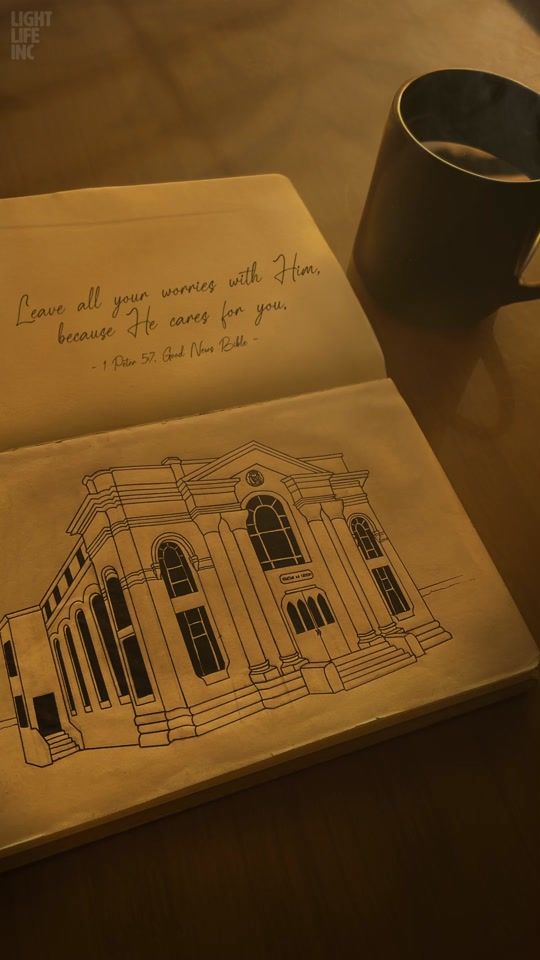 LIGHT
LIFE
INC
Leave all your worries with Him,
because He cares for you.
- 1 Peter 5:7, Good News Bible -